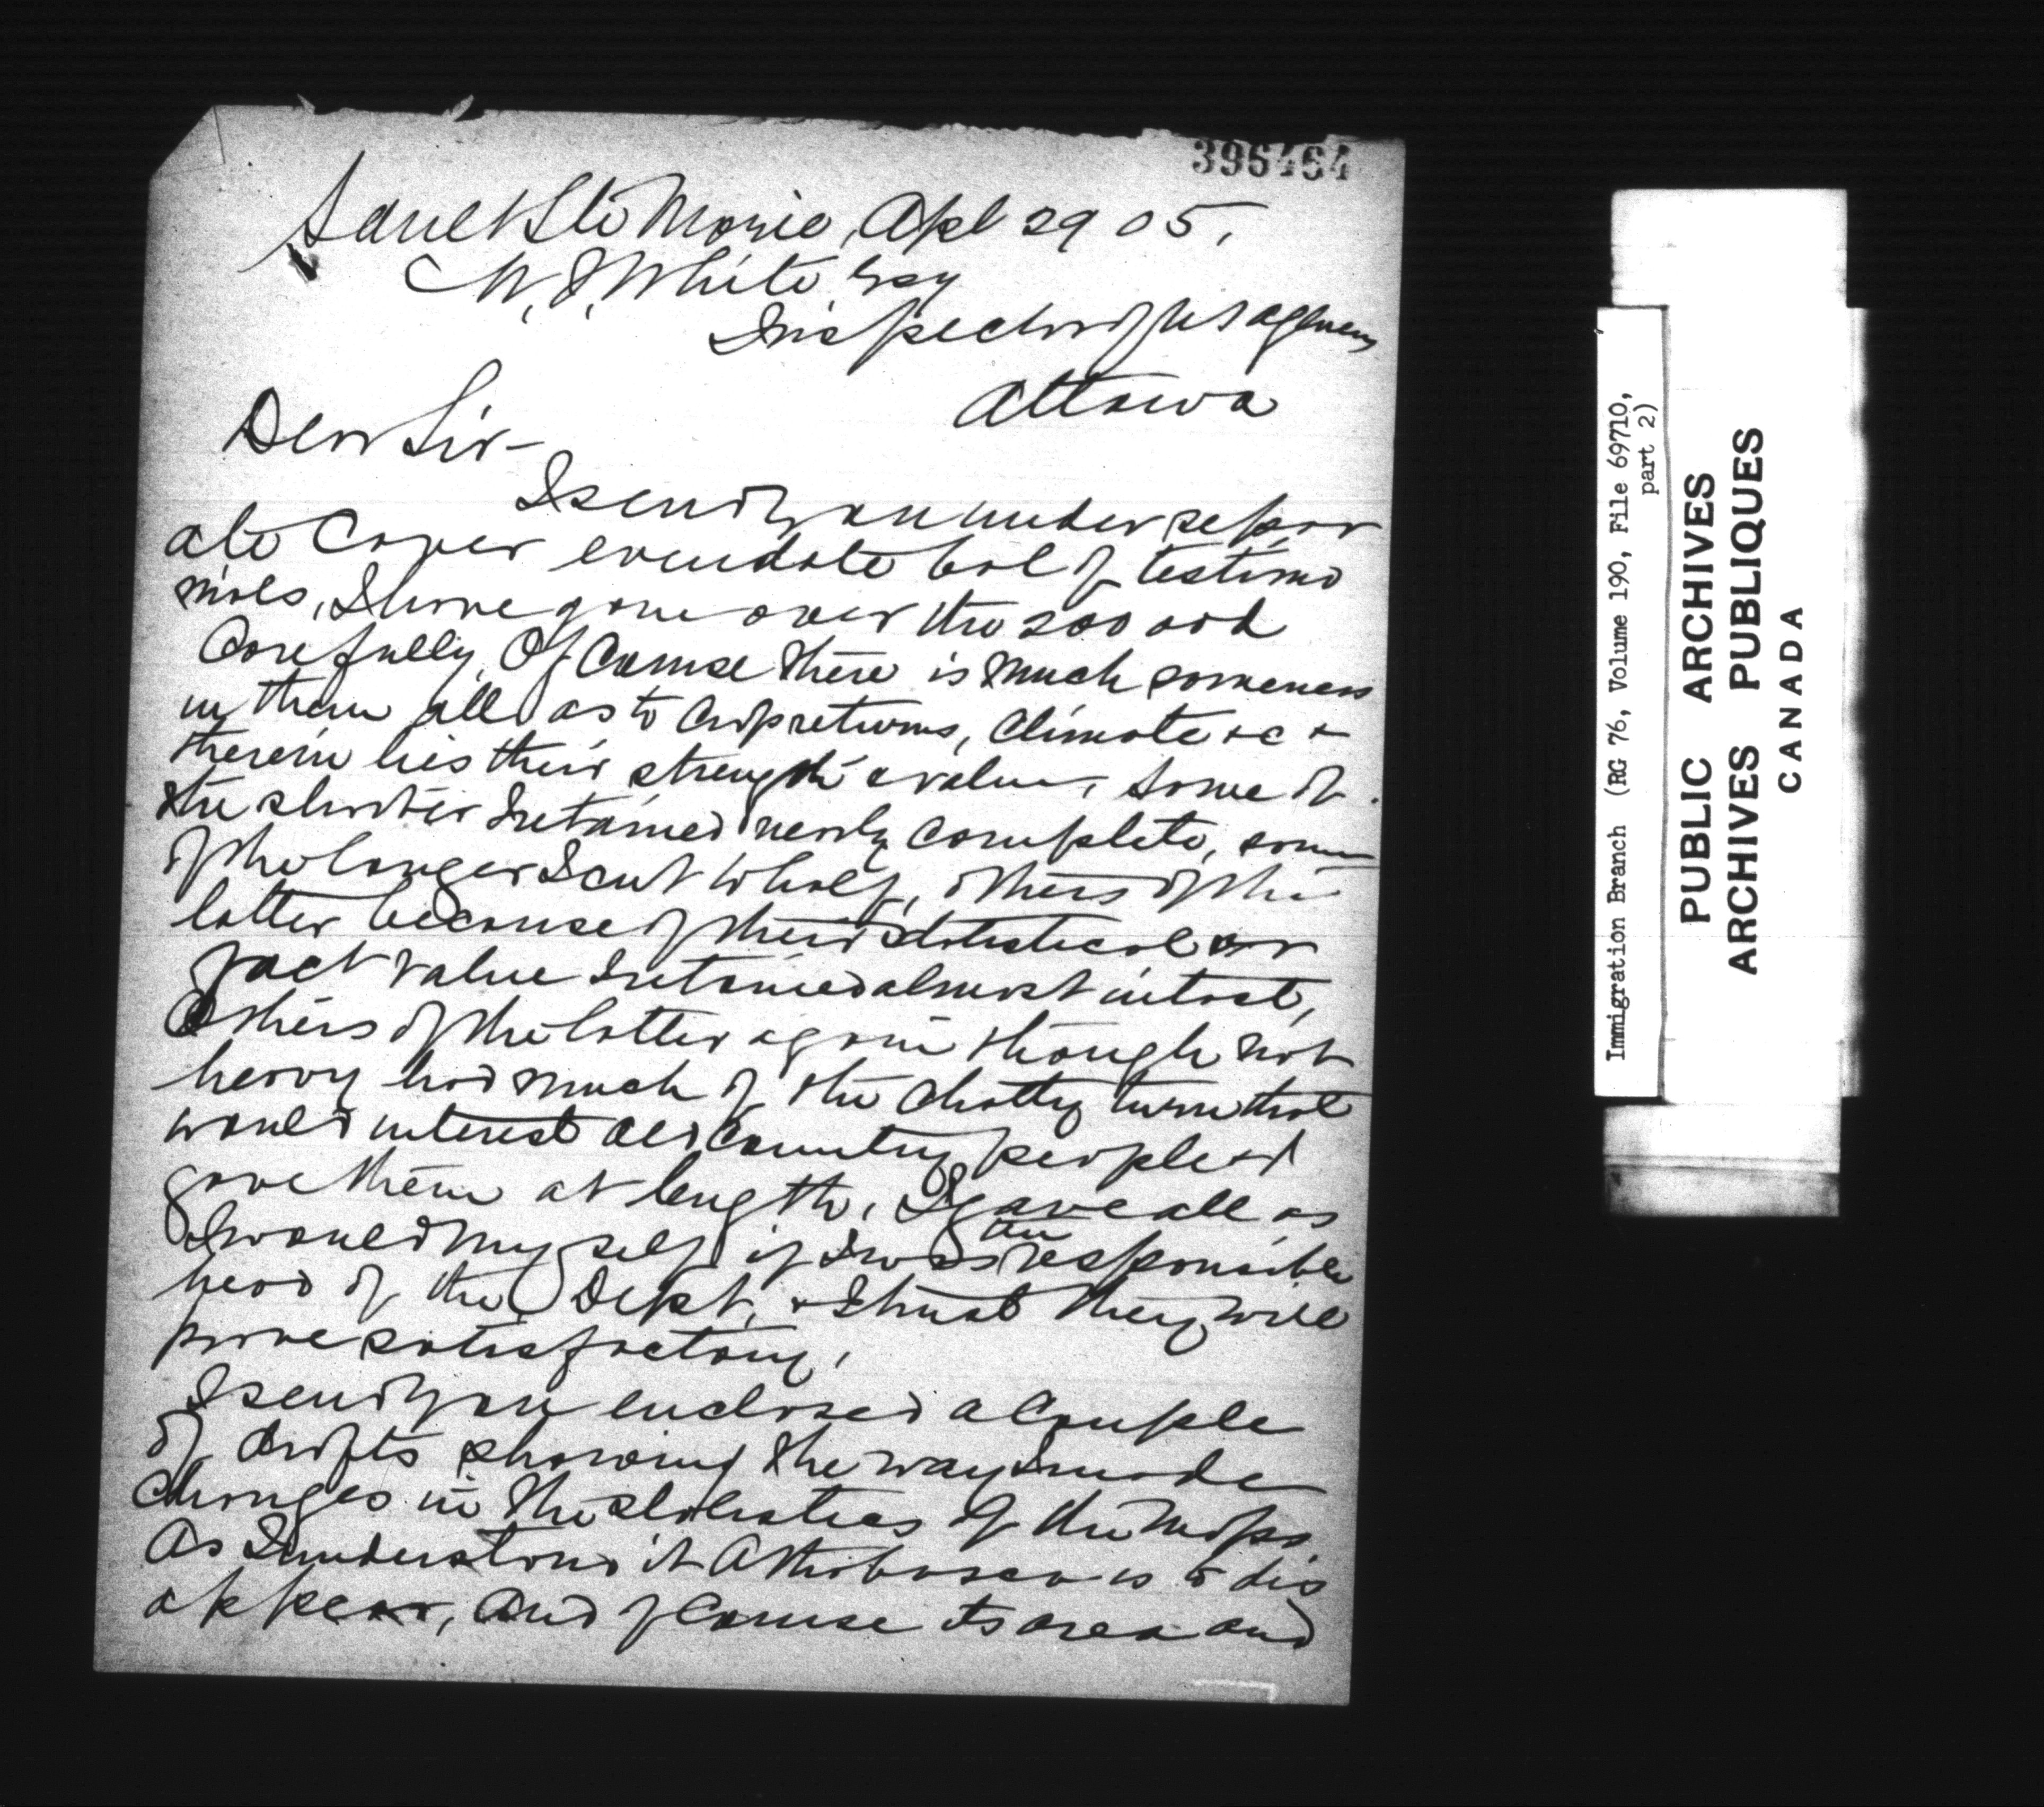 396464
Sault Ste Marie, Apl 29 05,
W. J. White Esq
Inspector of US Agency
Ottawa
Dear Sir-
I send you under separ
ate cover even date bal of testimo
nials, I have gone over the 200 odd
carefully. Of course there is much sameness
in them all as to crop returns, climate &c &
therein lies their strength & value, some of
the shorter I retained nearly complete, some
of the longer I cut in half, others of the
latter because of their statistical or
fact value I retained almost intact,
Others of the latter again though not
heavy had much of the chatty turn that
would interest old country people & I
gave them at length. I gave all as
I would myself if I was the responsible
head of the Dept. & I trust they will
prove satisfactory.
I send you enclosed a couple
of drafts showing the way I made
changes in the statistics of the maps.
As I understand it Athabasca is to dis
appear, and of course its area and
Immigration Branch (RG 76, Volume 190, File 69710,
part 2)
PUBLIC ARCHIVES
ARCHIVES PUBLIQUES
CANADA